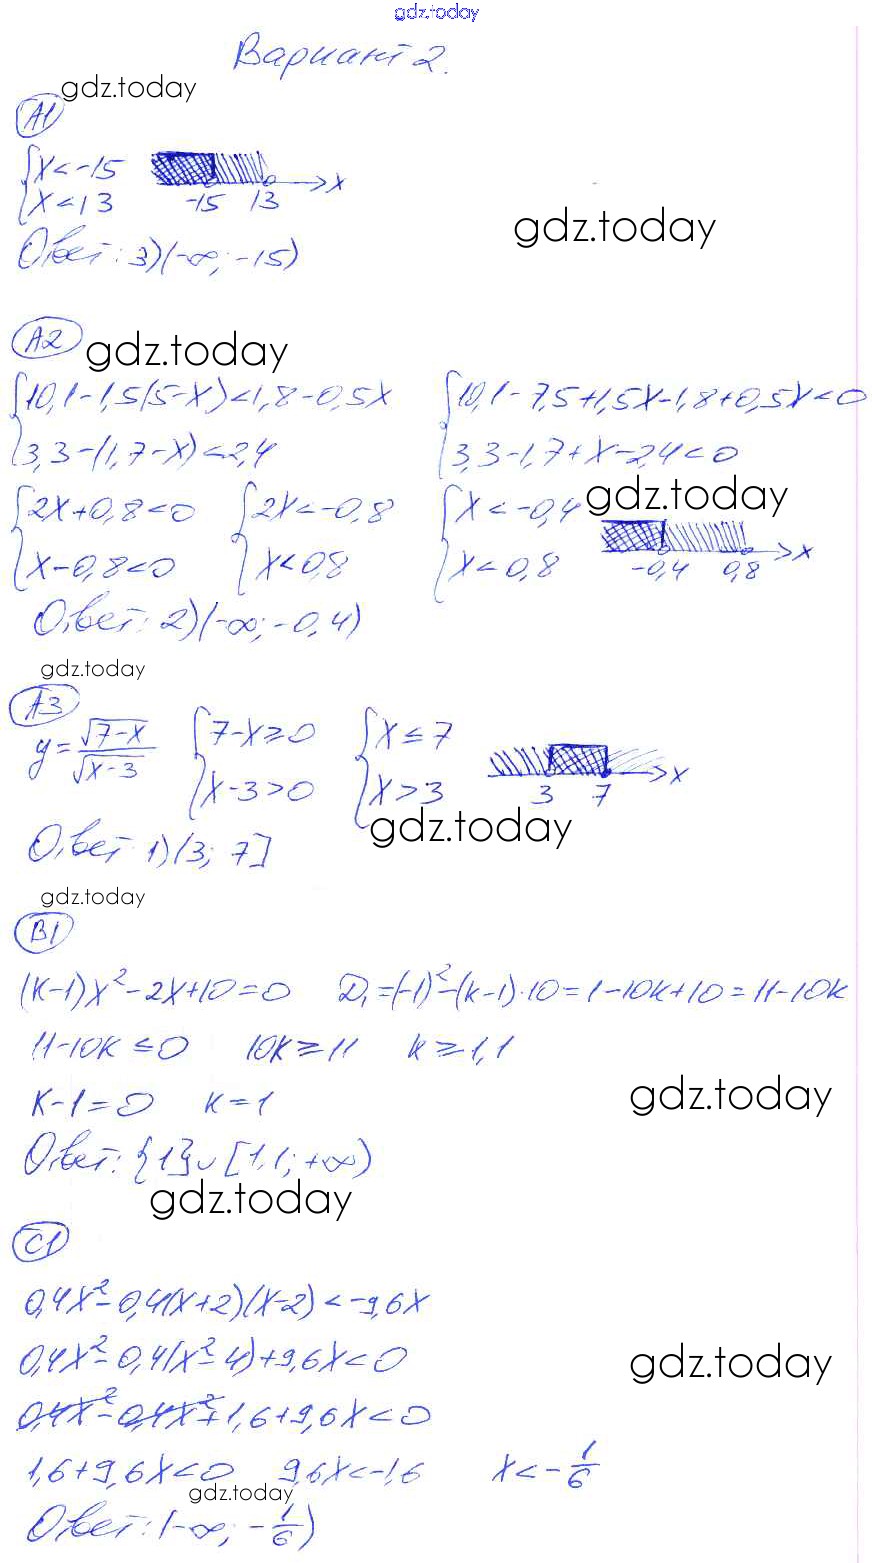 gdz.today
Вариант 2.
gdz.today
А1
{x<-15
{x<13
-15 13 x
gdz.today
Ответ: 3)(-∞; -15)
А2
gdz.today
{10,1-1,5(5-x)<1,8-0,5x {10,1-7,5+1,5x-1,8+0,5x<0
{3,3-(1,7-x)<2,4 {3,3-1,7+x-2,4<0
gdz.today
{2x+0,8<0 {2x<-0,8 {x<-0,4
{x-0,8<0 {x<0,8 {x<0,8 -0,4 0,8 x
Ответ: 2)(-∞; -0,4)
gdz.today
А3
y=√(7-x)/√(x-3) {7-x≥0 {x≤7
{x-3>0 {x>3 3 7 x
gdz.today
Ответ 1)(3; 7]
gdz.today
В1
(к-1)x²-2x+10=0 D₁=(-1)²-(к-1)·10=1-10к+10=11-10к
11-10к≤0 10к≥11 к≥1,1
к-1=0 к=1
gdz.today
Ответ: {1}∪[1,1; +∞)
gdz.today
С1
0,4x²-0,4(x+2)(x-2)<-9,6x
0,4x²-0,4(x²-4)+9,6x<0
gdz.today
0,4x²-0,4x²+1,6+9,6x<0
1,6+9,6x<0 9,6x<-1,6 x<-1/6
gdz.today
Ответ: (-∞; -1/6)